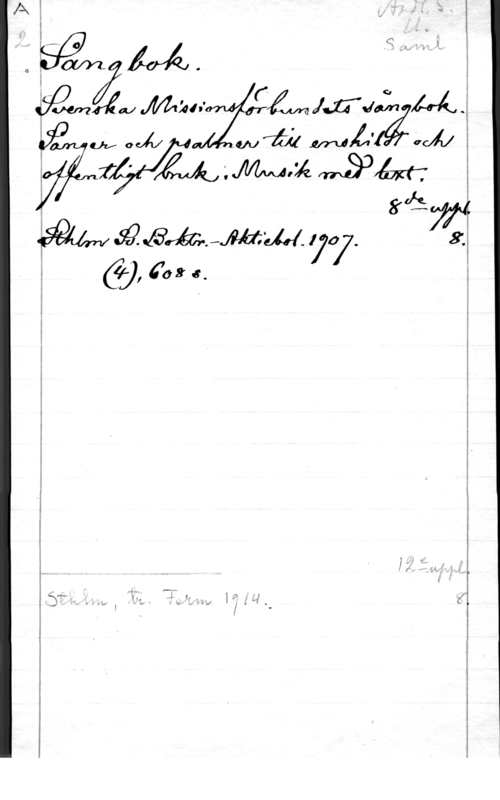 A
Andl. S.
U.
2
Saml
Sångbok.
Svenska Missionsförbundets sångbok.
Sånger och psalmer till enskildt och
offentligt bruk; Musik med text.
8de uppl.
Sthlm B. Boktr.-Aktiebol. 1907. 8.
(4), 608 s.
12e uppl.
Sthlm, tr. Ferm 1914. 8.